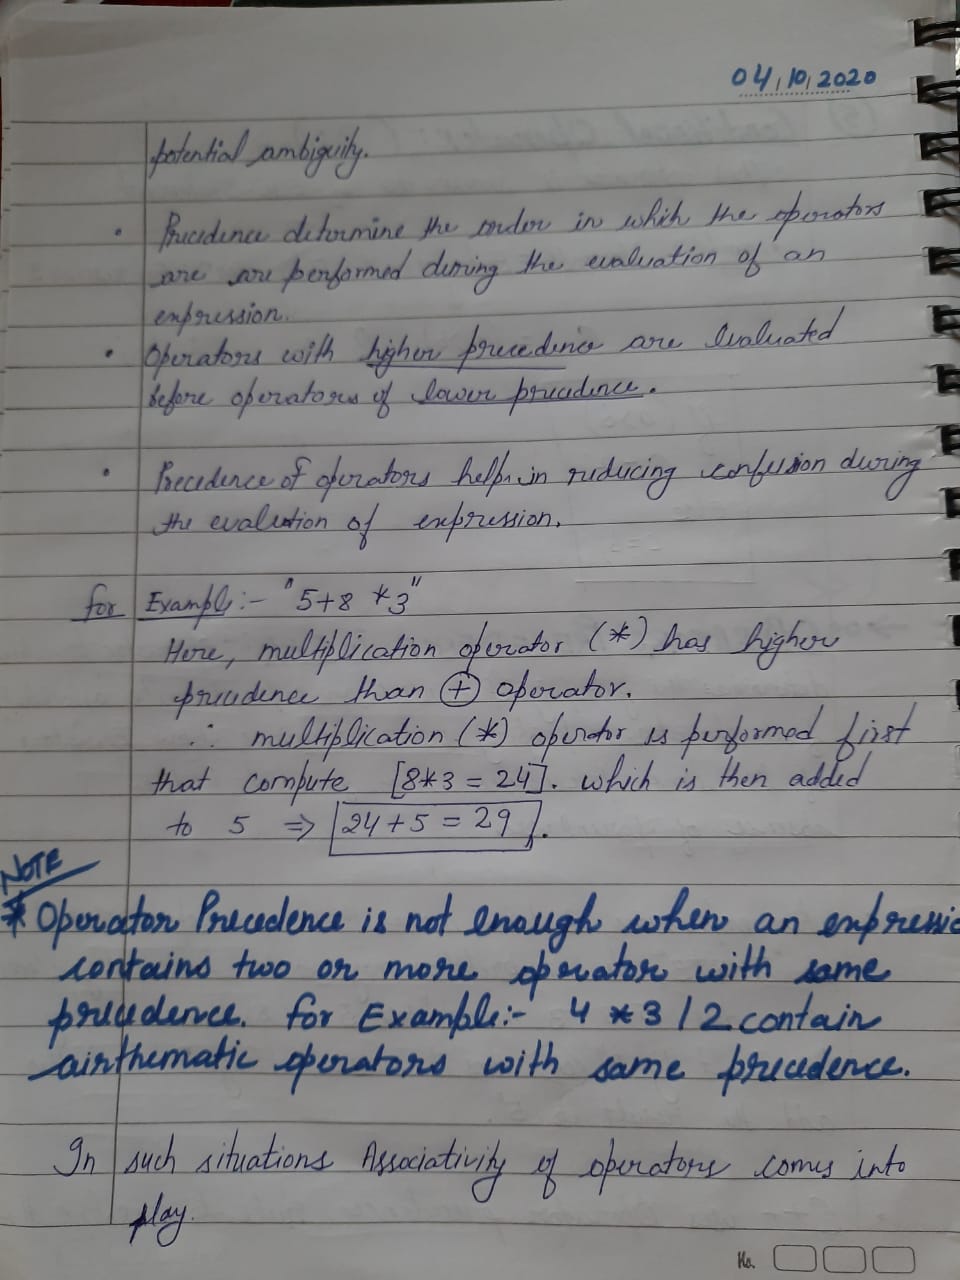 04/10/2020
potential ambiguity.
• Precedence determine the order in which the operators
are are performed during the evaluation of an
expression.
• Operators with higher precedence are evaluated
before operators of lower precedence.
• Precedence of operators helps in reducing confusion during
the evalution of expression.
for Example:- "5+8 *3"
Here, multiplication operator (*) has higher
precedence than (+) operator.
∴ multiplication (*) operator is performed first
that compute [8*3 = 24]. which is then added
to 5 ⇒ [24+5 = 29].
NOTE
* Operator Precedence is not enough when an expressio
contains two or more operator with same
precedence. for Example:- 4 * 3 / 2 contain
airthematic operators with same precedence.
In such situations Associativity of operators comes into
play.
No.